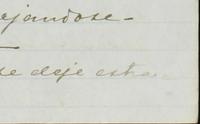 ejandose-
se deje estra